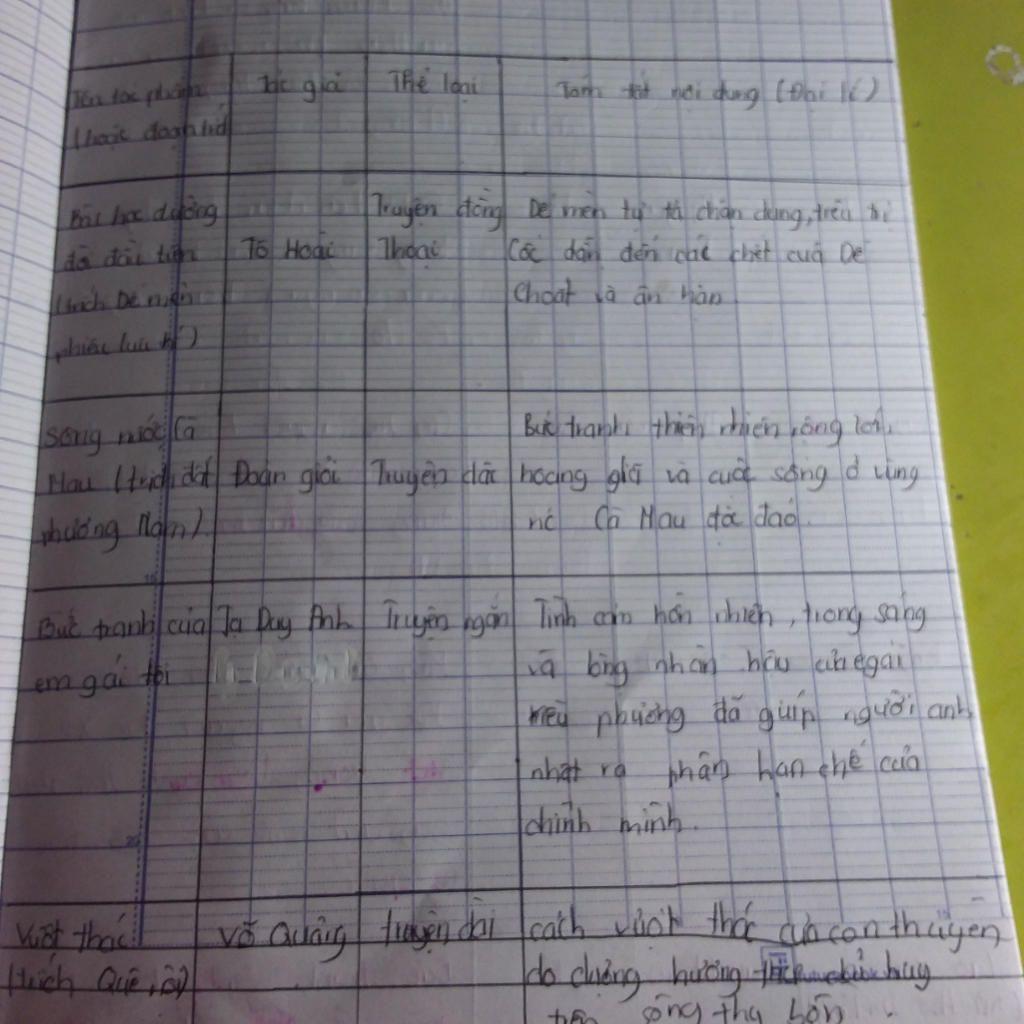 Tên tác phẩm Tác giả Thể loại Tóm tắt nội dung (Đại lí)
(hoặc đoạn trích
Bài học đường Truyện đồng Dế mèn tự tả chân dung, trêu
đời đầu tiên Tô Hoài Thoại Cốc dẫn đến cái chết cuả Dế
(trích Dế mèn Choắt và ân hận
phiêu lưu kí)
Sông nước Cà Bức tranh thiên nhiên rộng lớn,
Mau (trích đất Đoàn giỏi Truyện dài hoang giã và cuộc sống ở vùng
phương Nam) Cà Mau độc đáo.
Bức tranh của Tạ Duy Anh Truyện ngắn Tình cảm hồn nhiên, trong sáng
em gái tôi và lòng nhân hậu gái
phương đã giúp người anh
nhật ra phần hạn chế của
chính mình.
Vượt thác Võ Quảng truyện dài cách vượt thác của con thuyền
(trích Quê nội) do dượng hương huy
trên sông thu bồn